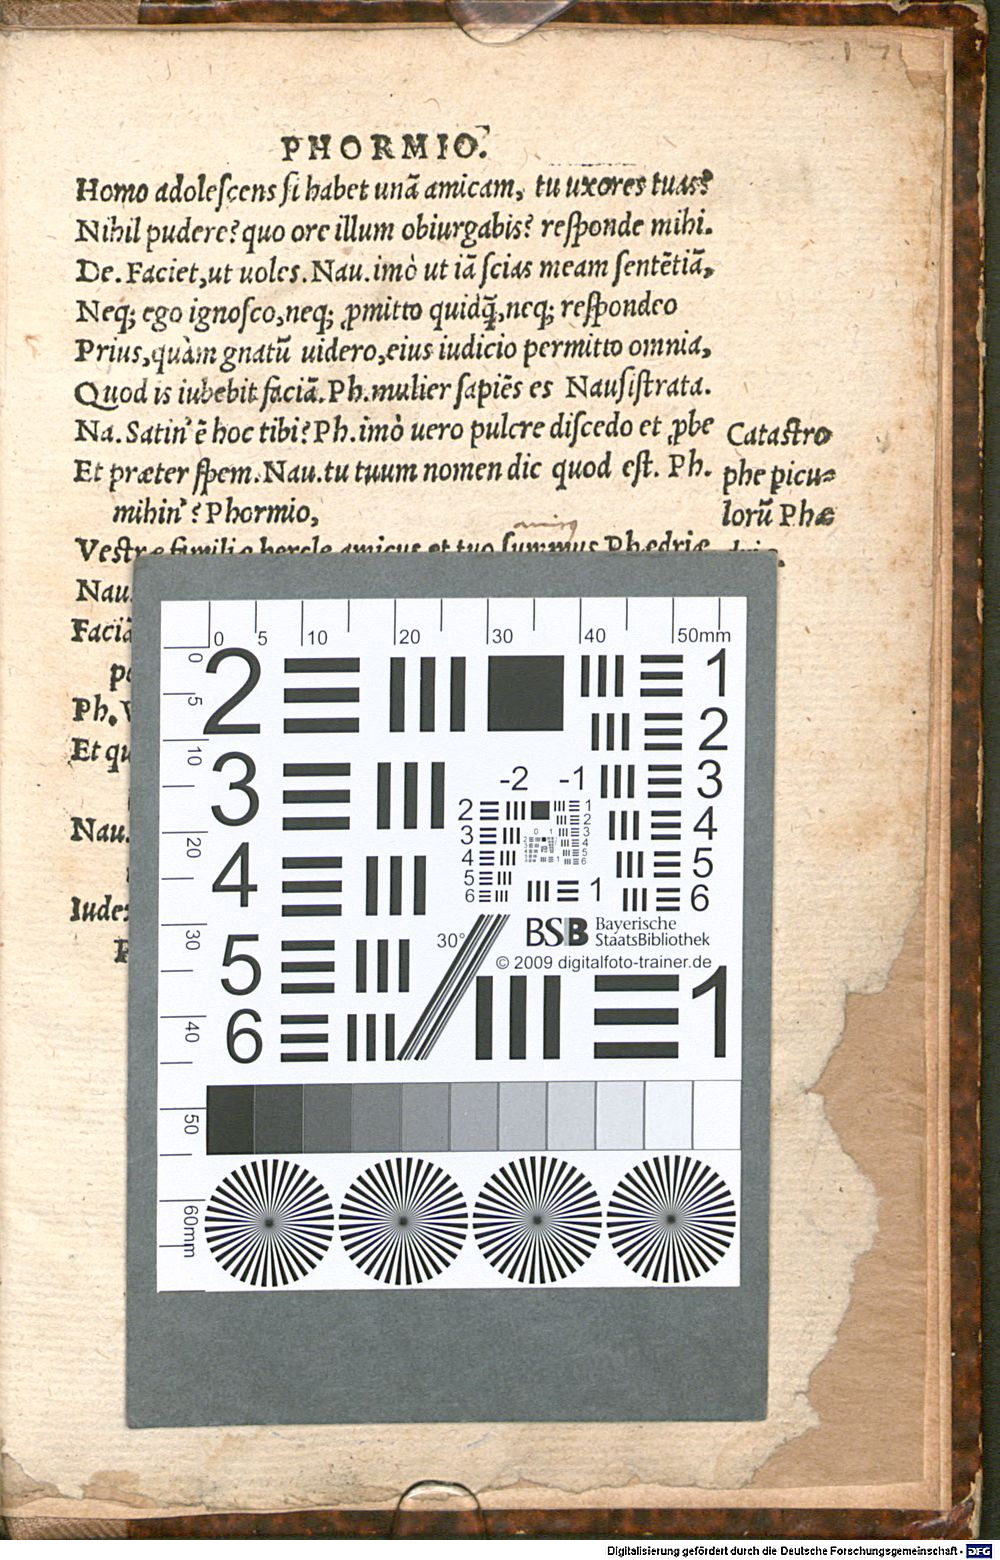 PHORMIO.
Homo adoleſcens ſi habet unã amicam, tu uxores tuas?
Nihil pudere? quo ore illum obiurgabis? reſponde mihi.
De. Faciet, ut uoles. Nau. imò ut iã ſcias meam ſentẽtiã,
Neq; ego ignoſco, neq; ꝓmitto quidq̃, neq; reſpondeo
Prius, quàm gnatũ uidero, eius iudicio permitto omnia,
Quod is iubebit faciã. Ph. mulier ſapiẽs es Nauſiſtrata.
Na. Satin' ẽ hoc tibi? Ph. imò uero pulcre diſcedo et ꝓbe
Et præter ſpem. Nau. tu tuum nomen dic quod eſt. Ph.
mihin'? Phormio,
Veſtræ familiæ hercle amicus et tuo ſummus Phædriæ
Catastro
phe picu-
lorũ Phæ
driæ.
Nau.
Faciã
Ph. V
Et qu
Nau.
Iudex
0 5 10 20 30 40 50mm
0 5 10 20 30 40 50 60mm
2 1
2
3 -2 -1 3
2 1
2
3 3
4 4
4 5 5
6 1 6
30°
BSB Bayerische
StaatsBibliothek
© 2009 digitalfoto-trainer.de
5
6 1
Digitalisierung gefördert durch die Deutsche Forschungsgemeinschaft - DFG